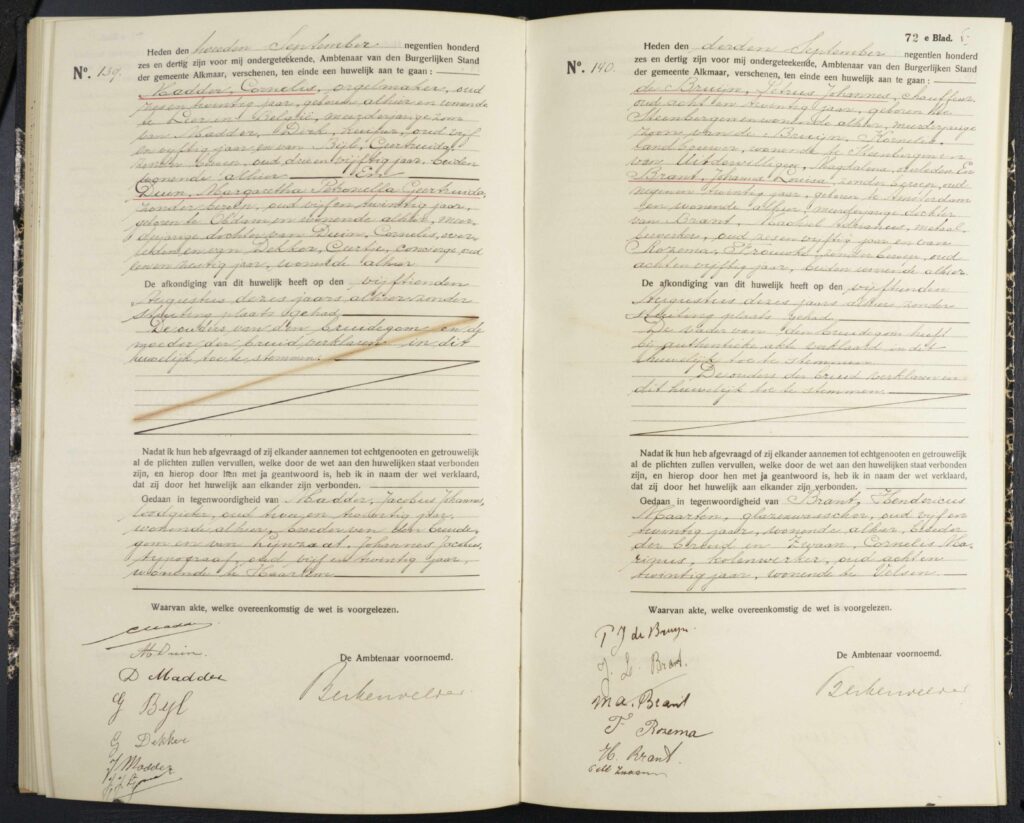 Nº. 139.
Heden den tweeden September negentien honderd
zes en dertig zijn voor mij ondergeteekende, Ambtenaar van den Burgerlijken Stand
der gemeente Alkmaar, verschenen, ten einde een huwelijk aan te gaan:
Madder, Cornelis, orgelmaker, oud
zes en twintig jaar, geboren alhier en wonende
te Lier in België, meerderjarige zoon
van Madder, Dirk, oud vijf
en vijftig jaar en van Bijl, Geertruida,
zonder beroep, oud drie en vijftig jaar, beiden
wonende alhier En
Duin, Margaretha Petronella Geertruida,
zonder beroep, oud vijf en twintig jaar,
geboren te Obdam en wonende alhier, meer
derjarige dochter van Duin, Cornelis, over
leden en van Dekker, Geertje, concierge, oud
een en zestig jaar, wonende alhier
De afkondiging van dit huwelijk heeft op den vijftienden
Augustus dezes jaars alhier zonder
stuiting plaats gehad.
De ouders van den bruidegom en de
moeder der bruid verklaren in dit
huwelijk toe te stemmen.
Nadat ik hun heb afgevraagd of zij elkander aannemen tot echtgenooten en getrouwelijk
al de plichten zullen vervullen, welke door de wet aan den huwelijken staat verbonden
zijn, en hierop door hen met ja geantwoord is, heb ik in naam der wet verklaard,
dat zij door het huwelijk aan elkander zijn verbonden.
Gedaan in tegenwoordigheid van Madder, Jacobus Johannes,
loodgieter, oud twee en twintig jaar,
wonende alhier, broeder van den bruide
gom en van Lijnzaat, Johannes Jacobus,
typograaf, oud vijf en twintig jaar,
wonende te Haarlem
Waarvan akte, welke overeenkomstig de wet is voorgelezen.
De Ambtenaar voornoemd.
M Duin.
D Madder
G Byl
G Dekker
J Madder
72 e Blad.
Nº. 140.
Heden den derden September negentien honderd
zes en dertig zijn voor mij ondergeteekende, Ambtenaar van den Burgerlijken Stand
der gemeente Alkmaar, verschenen, ten einde een huwelijk aan te gaan:
de Bruijn, Petrus Johannes, chauffeur,
oud acht en twintig jaar, geboren te
Steenbergen en wonende alhier, meerderjarige
zoon van de Bruijn, Kornelis,
landbouwer, wonende te Steenbergen en
van Uitdewilligen, Magdalena, overleden En
Brant, Johanna Louisa, zonder beroep, oud
negen en twintig jaar, geboren te Amsterdam
en wonende alhier, meerderjarige dochter
van Brant, Machiel Adrianus, metaal
bewerker, oud zes en vijftig jaar en van
Rozema, Frouwke, zonder beroep, oud
acht en vijftig jaar, beiden wonende alhier.
De afkondiging van dit huwelijk heeft op den vijftienden
Augustus dezes jaars alhier zonder
stuiting plaats gehad.
De vader van den bruidegom heeft
bij authentieke akte verklaard in dit
huwelijk toe te stemmen.
De ouders der bruid verklaren in
dit huwelijk toe te stemmen.
Nadat ik hun heb afgevraagd of zij elkander aannemen tot echtgenooten en getrouwelijk
al de plichten zullen vervullen, welke door de wet aan den huwelijken staat verbonden
zijn, en hierop door hen met ja geantwoord is, heb ik in naam der wet verklaard,
dat zij door het huwelijk aan elkander zijn verbonden.
Gedaan in tegenwoordigheid van Brant, Hendericus
Maarten, glazenwasscher, oud vijf en
twintig jaar, wonende alhier, broeder
der bruid en Zwaan, Cornelis Ma
rinus, kolenwerker, oud acht en
twintig jaar, wonende te Velsen.
Waarvan akte, welke overeenkomstig de wet is voorgelezen.
De Ambtenaar voornoemd.
P J de Bruijn
J. L. Brant.
M a. Brant
F Rozema
H. Brant.